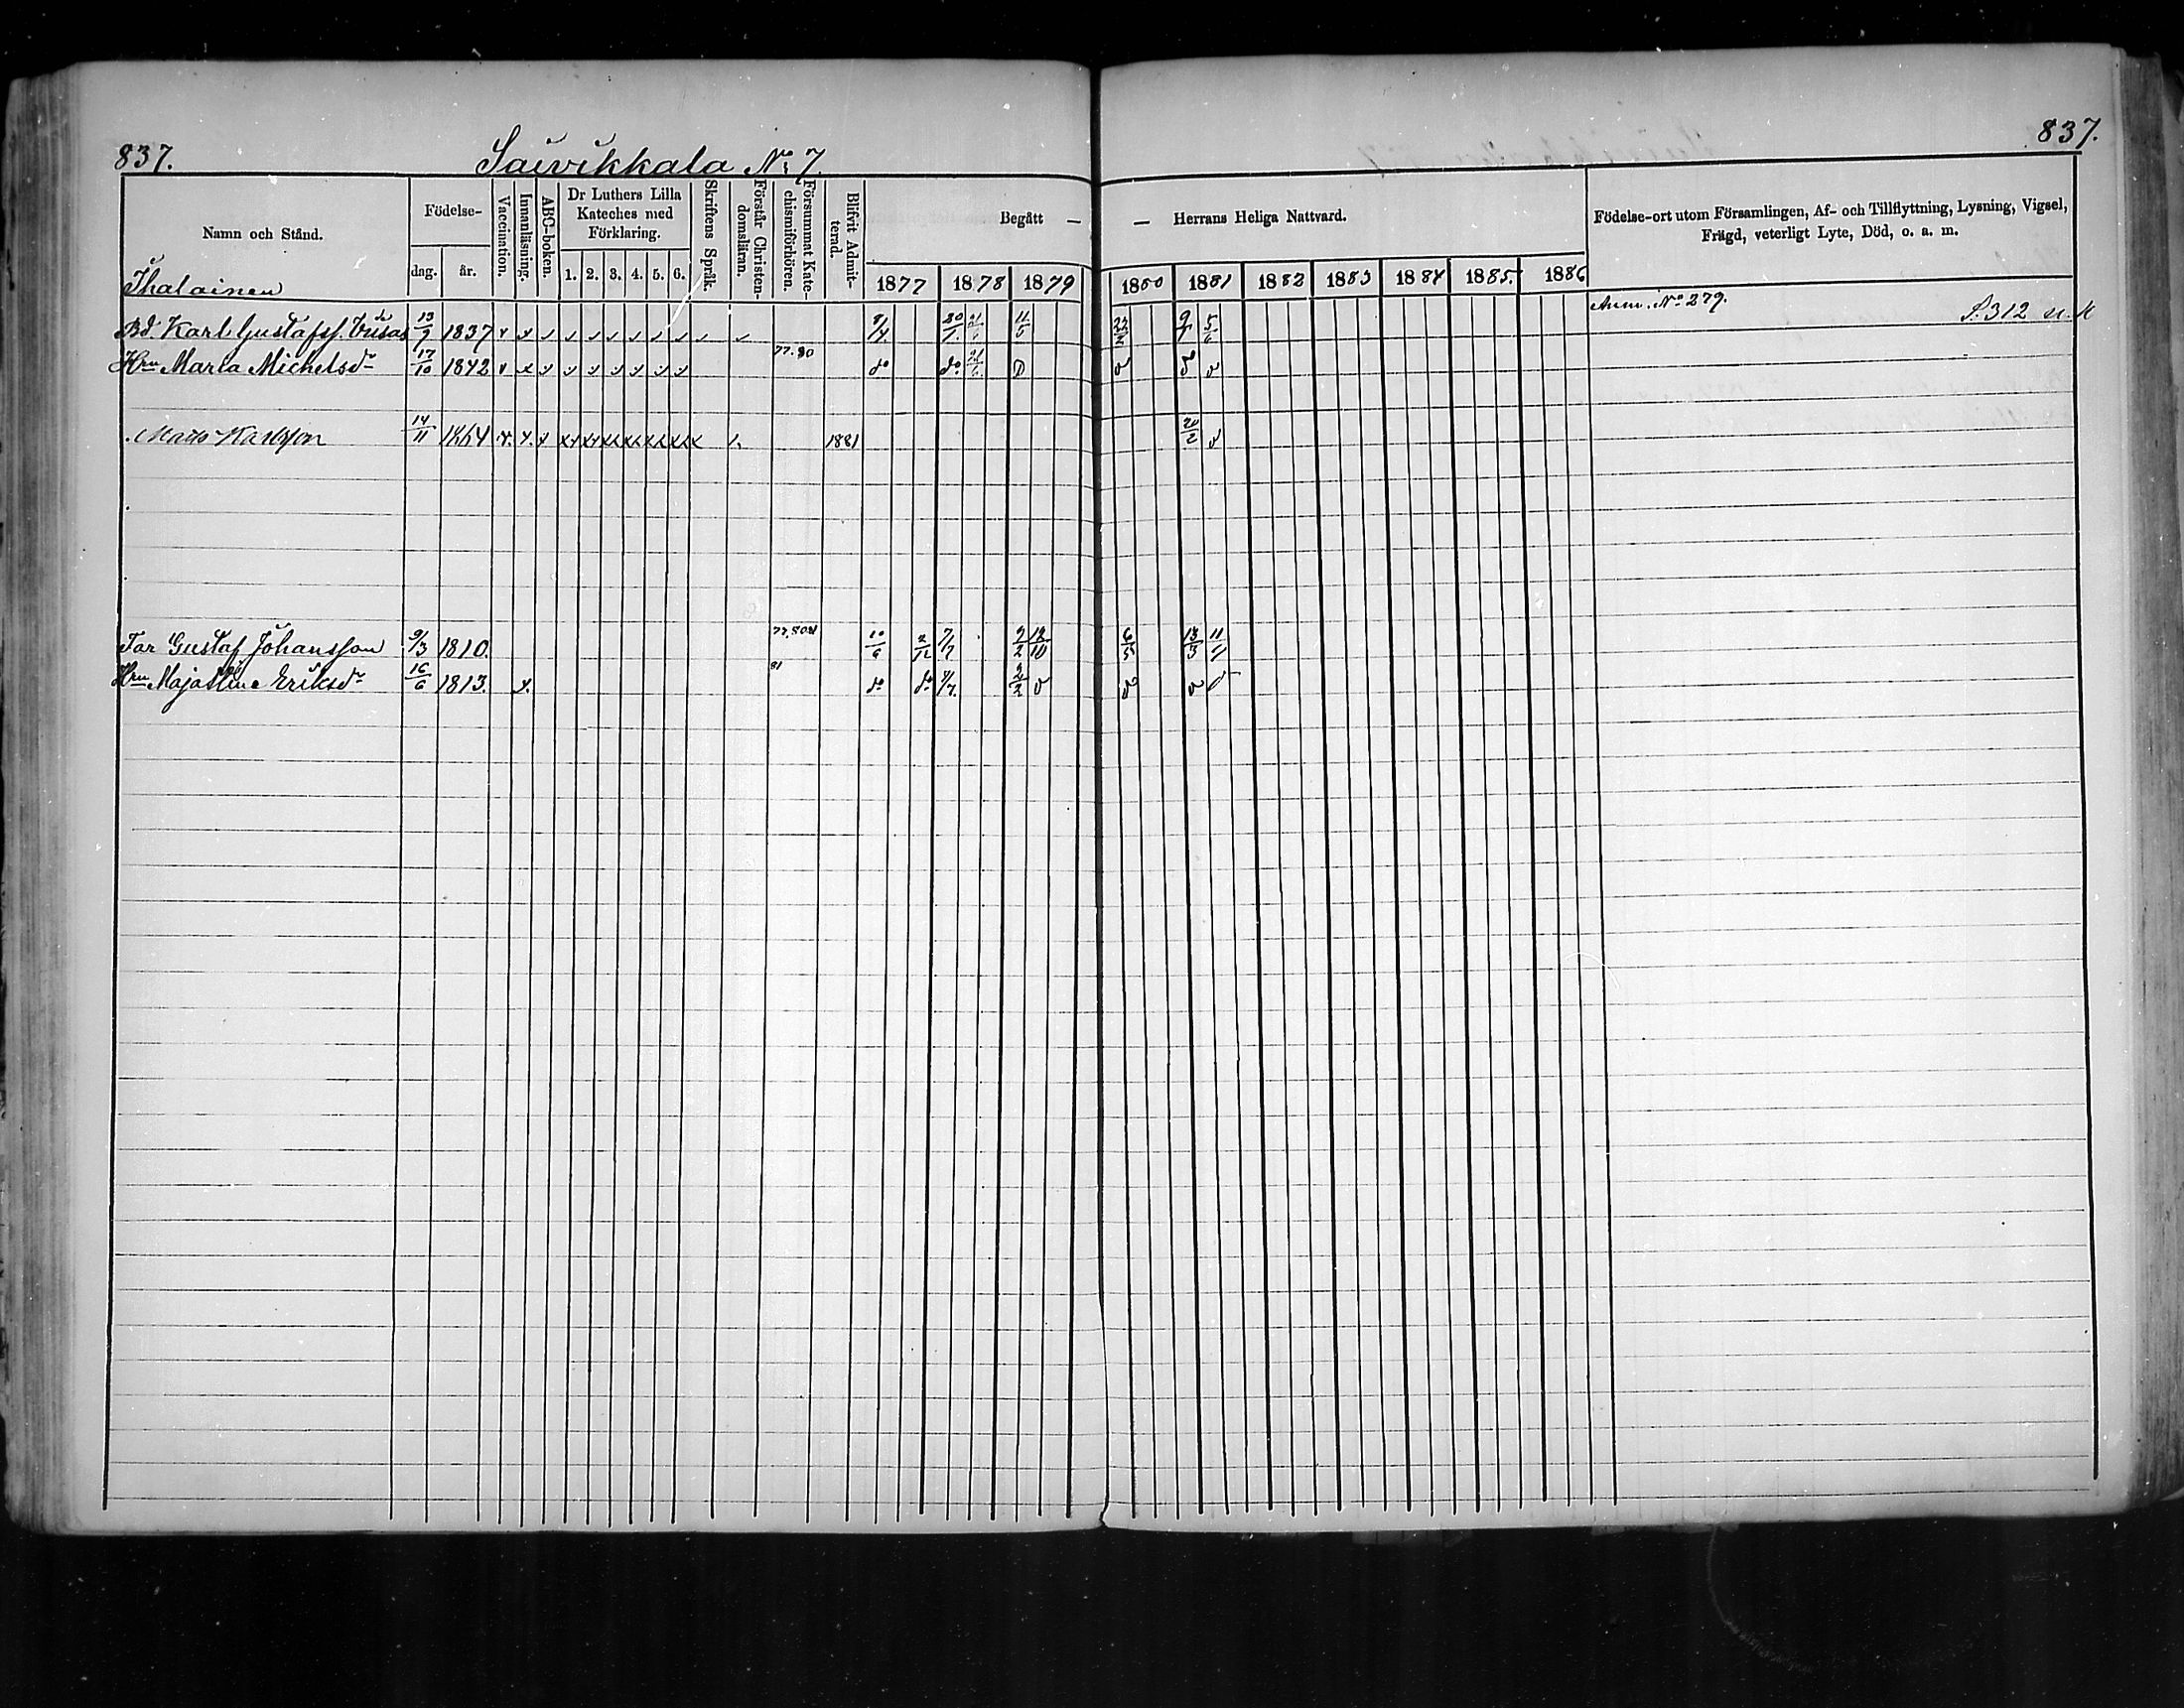 837.
Saivikkala No 7.
837.
Namn och Stånd.
Födelse-
dag. år.
Vaccination.
Innanläsning.
ABC-boken.
Dr Luthers Lilla
Kateches med
Förklaring.
1. 2. 3. 4. 5. 6.
Skriftens Språk.
Förstår Christen-
domsläran.
Försummat Kate-
chismiförhören.
Blifvit Admit-
terad.
Begått —
— Herrans Heliga Nattvard.
1877 1878 1879 1880 1881 1882 1883 1884 1885. 1886
Födelse-ort utom Församlingen, Af- och Tillflyttning, Lysning, Vigsel,
Frägd, veterligt Lyte, Död, o. a. m.
Ihalainen
Anm. No 279.
S. 312 n. k
Bd. Karl Gustafss. 13/9 1837 11/5 9/1 5/6
Hru Maria Michelsdr 17/10 1842 77.80 do do 21/6
Matts Karlsson 14/11 1864 1881 20/2
Far Gustaf Johansson 9/3 1810. 10/6 2/12 7/7 2/2 12/10 6/5 13/3 11/9
Hru Majastina Eriksdr 16/6 1813. 81 do do 7/7. 2/2